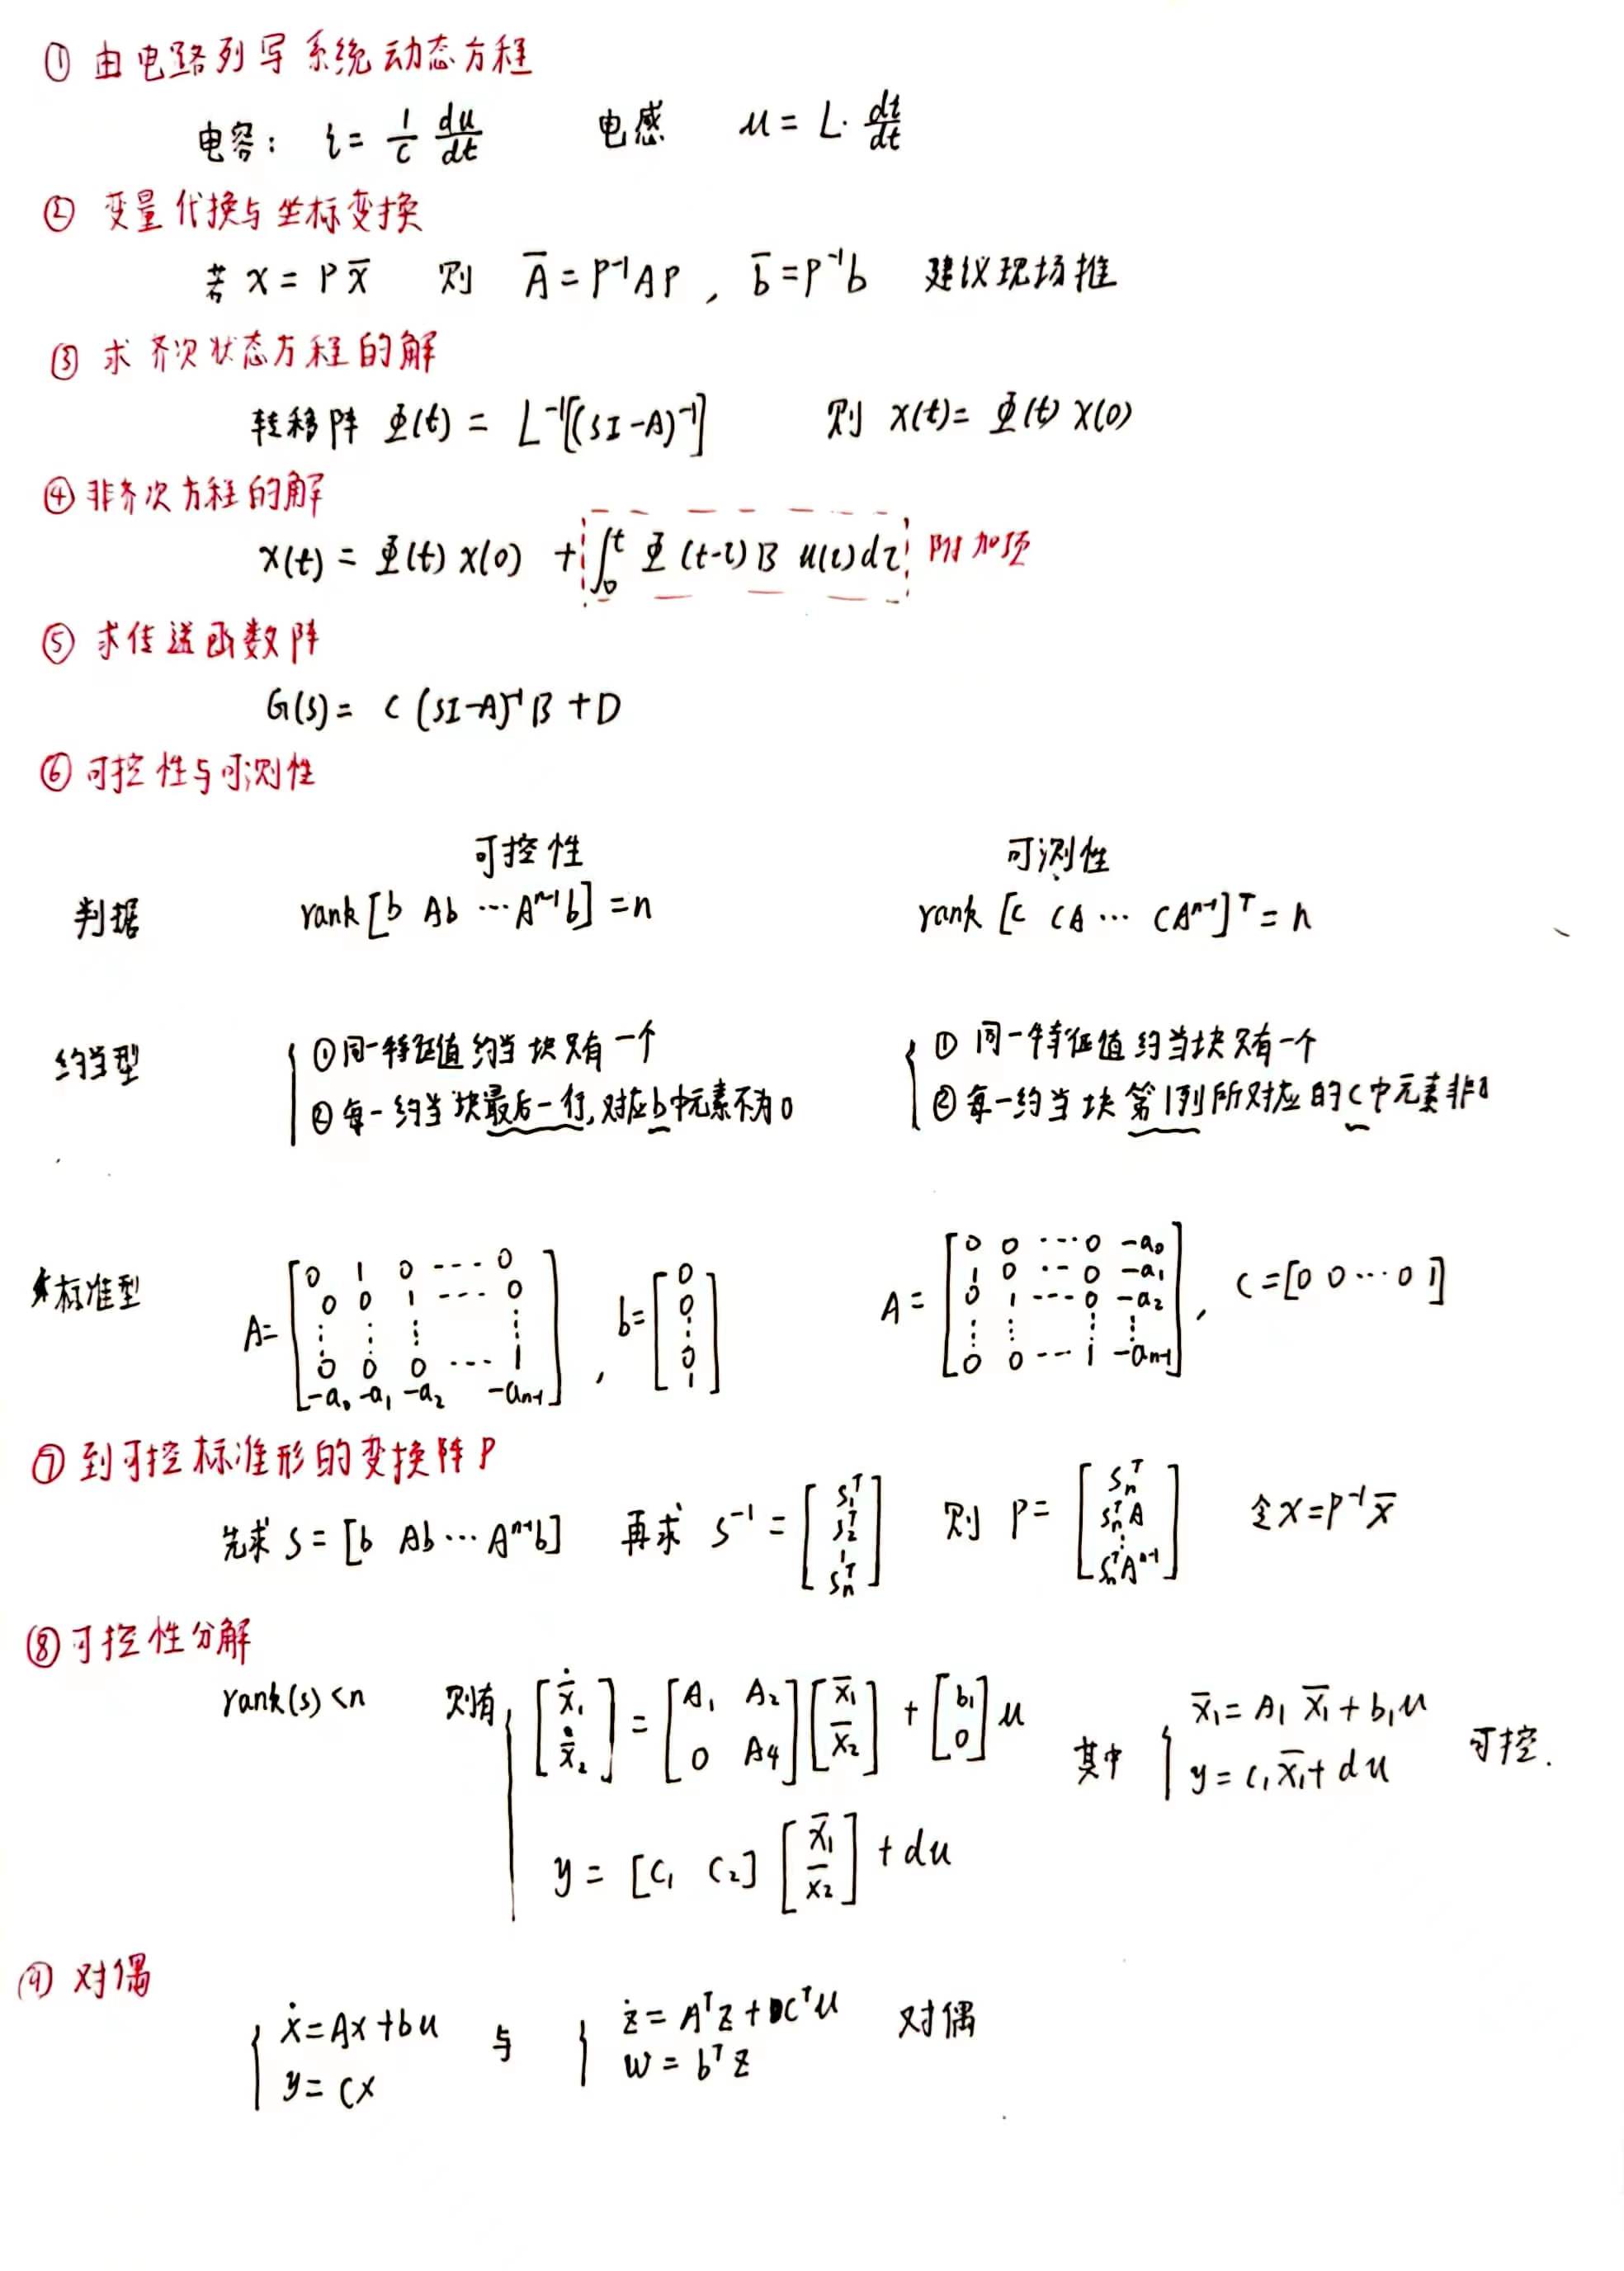 ① 由电路列写系统动态方程
电容: i = 1/C du/dt 电感 u = L· di/dt
② 变量代换与坐标变换
若 x = P x̄ 则 Ā = P⁻¹AP , b̄ = P⁻¹b 建议现场推
③ 求齐次状态方程的解
转移阵 Φ(t) = L⁻¹[(sI-A)⁻¹] 则 x(t) = Φ(t) x(0)
④ 非齐次方程的解
x(t) = Φ(t) x(0) + ∫₀ᵗ Φ(t-τ) B u(τ) dτ 附加项
⑤ 求传递函数阵
G(s) = C (sI-A)⁻¹ B + D
⑥ 可控性与可测性
可控性 可测性
判据 rank [b Ab ⋯ Aⁿ⁻¹b] = n rank [C CA ⋯ CAⁿ⁻¹]ᵀ = n
约当型 { ① 同一特征值约当块只有一个 { ① 同一特征值约当块只有一个
② 每一约当块最后一行,对应b中元素不为0 ② 每一约当块第1列所对应的C中元素非0
标准型 A = [0 1 0 ---- 0; 0 0 1 ---- 0; ⋮ ⋮ ⋮ ⋮; 0 0 0 ⋯ 1; -a₀ -a₁ -a₂ -aₙ₋₁] , b = [0; 0; ⋮; 0; 1] A = [0 0 ⋯ 0 -a₀; 1 0 ⋯ 0 -a₁; 0 1 ---- 0 -a₂; ⋮ ⋮ ⋮ ⋮; 0 0 --- 1 -aₙ₋₁] , C = [0 0 ⋯ 0 1]
⑦ 到可控标准形的变换阵 P
先求 S = [b Ab ⋯ Aⁿ⁻¹b] 再求 S⁻¹ = [S₁ᵀ; S₂ᵀ; ⋮; Sₙᵀ] 则 P = [Sₙᵀ; SₙᵀA; ⋮; SₙᵀAⁿ⁻¹] 令 x = P⁻¹ x̄
⑧ 可控性分解
rank(s) < n 则有 { [ẋ̄₁; ẋ̄₂] = [A₁ A₂; 0 A₄] [x̄₁; x̄₂] + [b₁; 0] u 其中 { x̄₁ = A₁ x̄₁ + b₁u
y = C₁ x̄₁ + du 可控.
y = [C₁ C₂] [x̄₁; x̄₂] + du
⑨ 对偶
{ ẋ = Ax + bu 与 { ż = Aᵀz + Cᵀu 对偶
y = Cx w = bᵀz